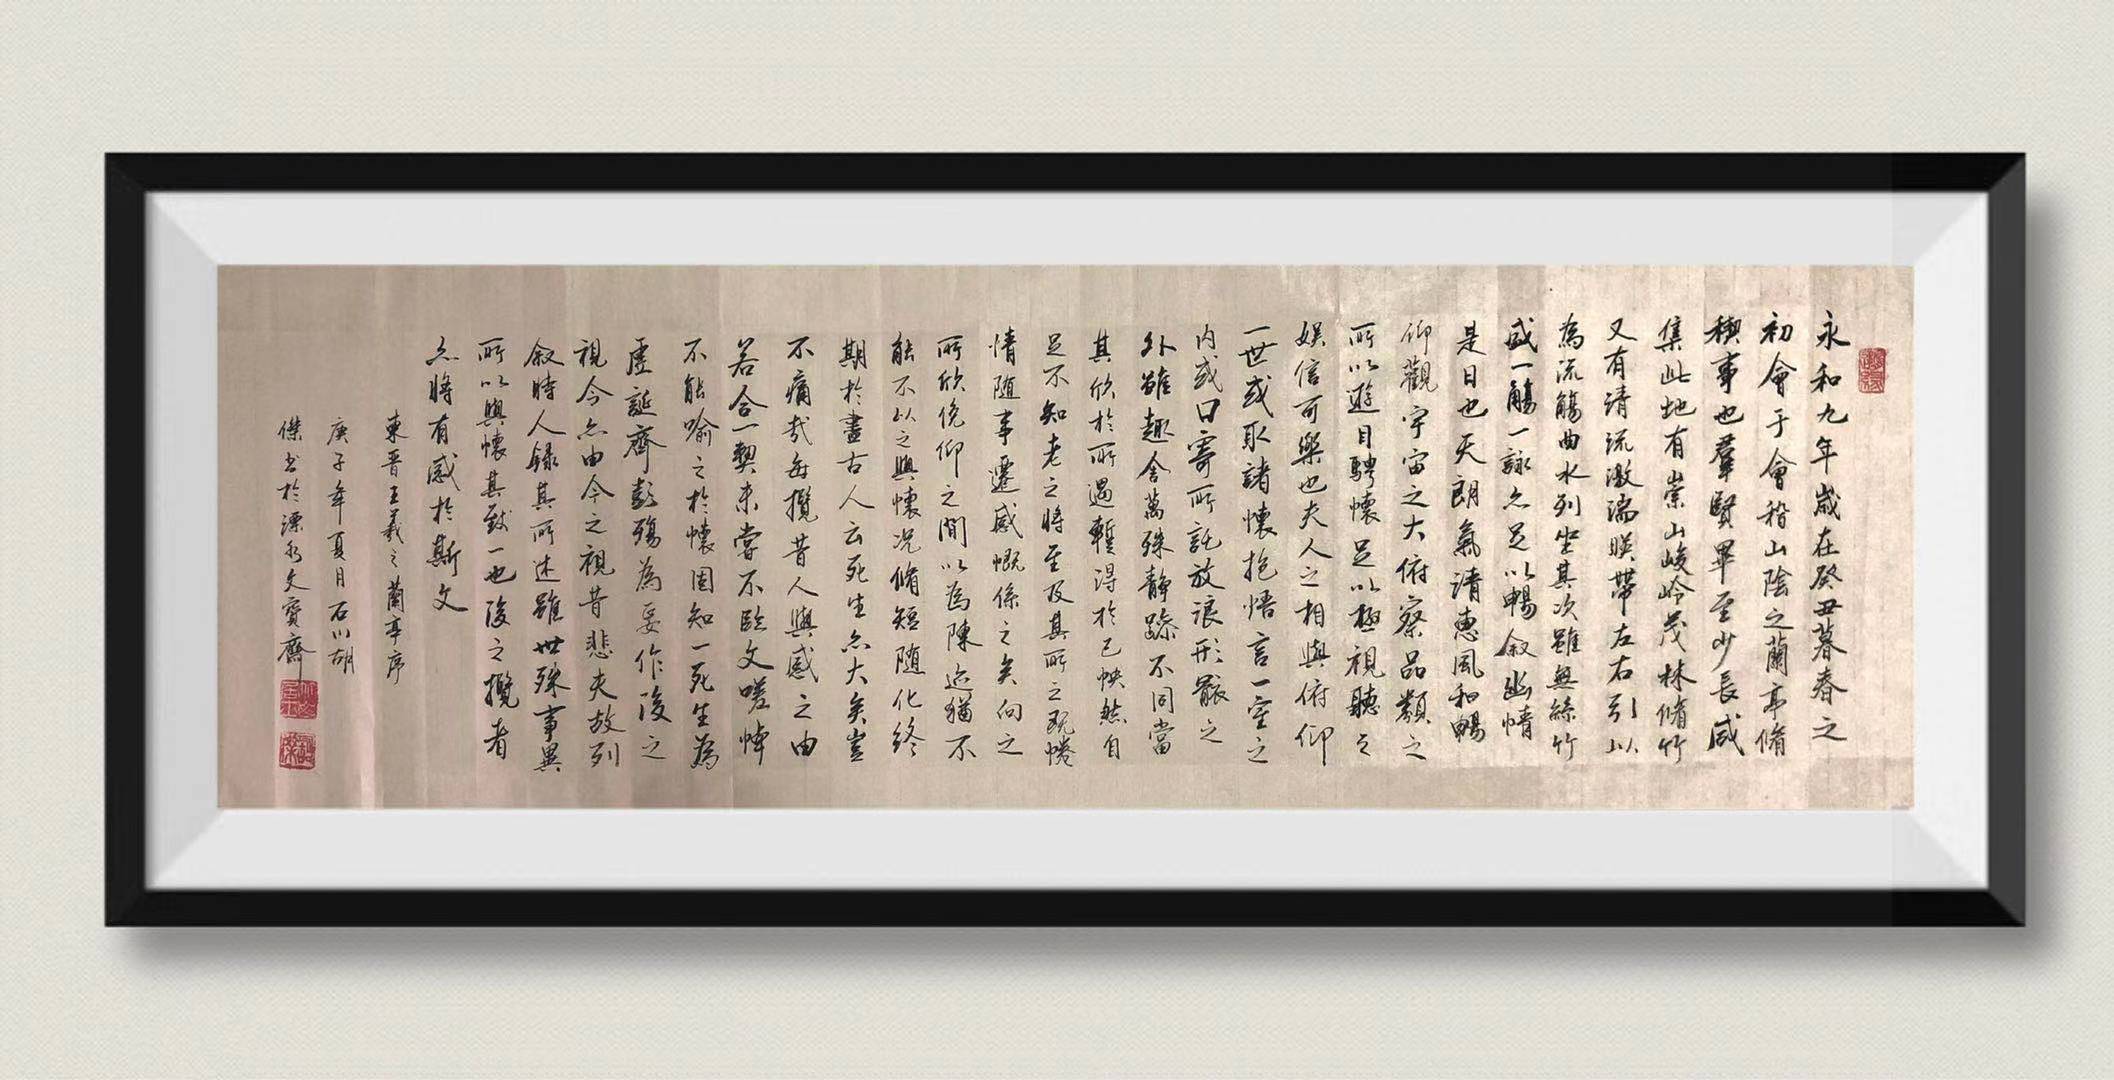 永和九年歲在癸丑暮春之
初會于會稽山陰之蘭亭脩
稧事也羣賢畢至少長咸
集此地有崇山峻岭茂林脩竹
又有清流激湍暎帶左右引以
為流觴曲水列坐其次雖無絲竹
盛一觴一詠亦足以暢叙幽情
是日也天朗氣清惠風和暢
仰觀宇宙之大俯察品類之
所以遊目騁懷足以極視聽之
娛信可樂也夫人之相與俯仰
一世或取諸懷抱悟言一室之
內或因寄所託放浪形骸之
外雖趣舍萬殊静躁不同當
其欣於所遇暫得於己怏然自
足不知老之將至及其所之既惓
情随事遷感慨係之矣向之
所欣俛仰之間以為陳迹猶不
能不以之興懷况脩短随化終
期於盡古人云死生亦大矣豈
不痛哉每攬昔人興感之由
若合一契未甞不臨文嗟悼
不能喻之於懷固知一死生為
虛誕齊彭殤為妄作後之
視今亦由今之視昔悲夫故列
叙時人録其所述雖世殊事異
所以興懷其致一也後之攬者
亦將有感於斯文
東晋王羲之蘭亭序
庚子年夏月石川胡
傑书於溧水文寶齋